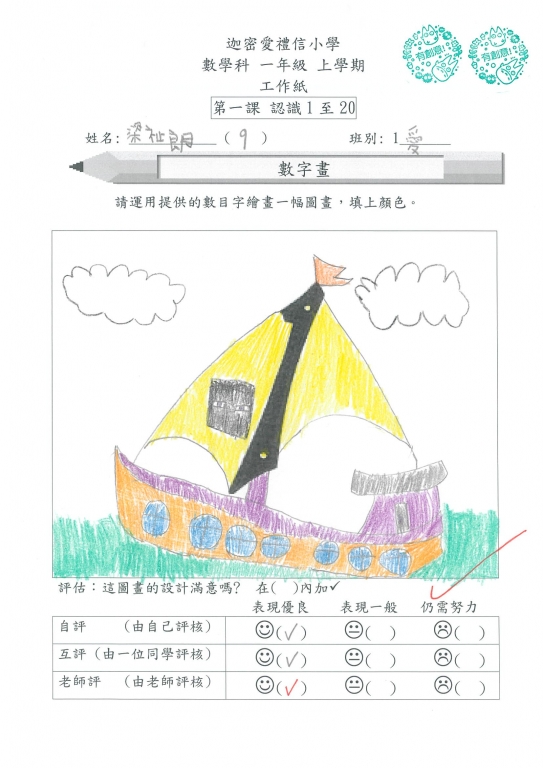 有創意! 有創意!
迦密愛禮信小學
數學科 一年級 上學期
工作紙
第一課 認識1至20
姓名: 梁祉朗 ( 9 ) 班別: 1 愛
數字畫
請運用提供的數目字繪畫一幅圖畫,填上顏色。
評估:這圖畫的設計滿意嗎? 在( )內加✓
表現優良 表現一般 仍需努力
自評 (由自己評核) ☺(✓) 😐( ) ☹( )
互評 (由一位同學評核) ☺(✓) 😐( ) ☹( )
老師評 (由老師評核) ☺(✓) 😐( ) ☹( )